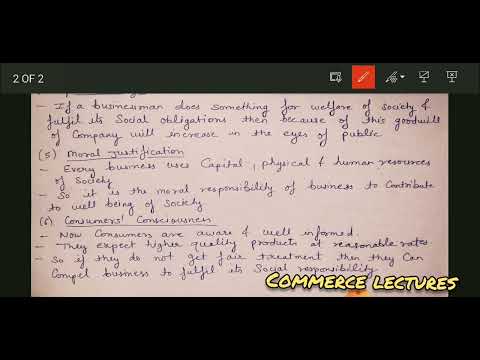 2 OF 2
- If a businessman does something for welfare of society &
fulfil its Social obligations then because of this goodwills
of Company will increase in the eyes of public
(5) Moral Justification
- Every business uses Capital, physical & human resources
of Society
- So it is the moral responsibility of business to Contribute
to well being of Society
(6) Consumers' Consciousness
- Now Consumers are aware & well informed.
- They expect higher quality products at reasonable rates.
- So if they do not get fair treatment then they Can
Compel business to fulfil its Social responsibility
COMMERCE LECTURES